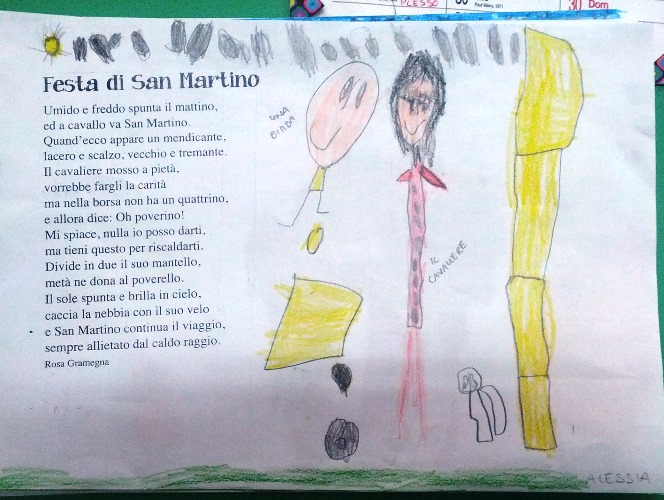 PLESSO
Paul Valery, 1871
30 Dom
Festa di San Martino
Umido e freddo spunta il mattino,
ed a cavallo va San Martino.
Quand'ecco appare un mendicante,
lacero e scalzo, vecchio e tremante.
Il cavaliere mosso a pietà,
vorrebbe fargli la carità
ma nella borsa non ha un quattrino,
e allora dice: Oh poverino!
Mi spiace, nulla io posso darti,
ma tieni questo per riscaldarti.
Divide in due il suo mantello,
metà ne dona al poverello.
Il sole spunta e brilla in cielo,
caccia la nebbia con il suo velo
e San Martino continua il viaggio,
sempre allietato dal caldo raggio.
Rosa Gramegna
UNA
BIMBA
IL
CAVALIERE
ALESSIA